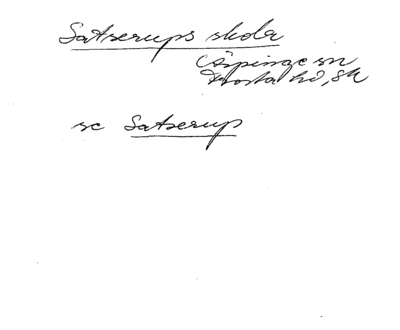 Satserups skola
Äspinge sn
Frosta hd, Sk
se Satserup